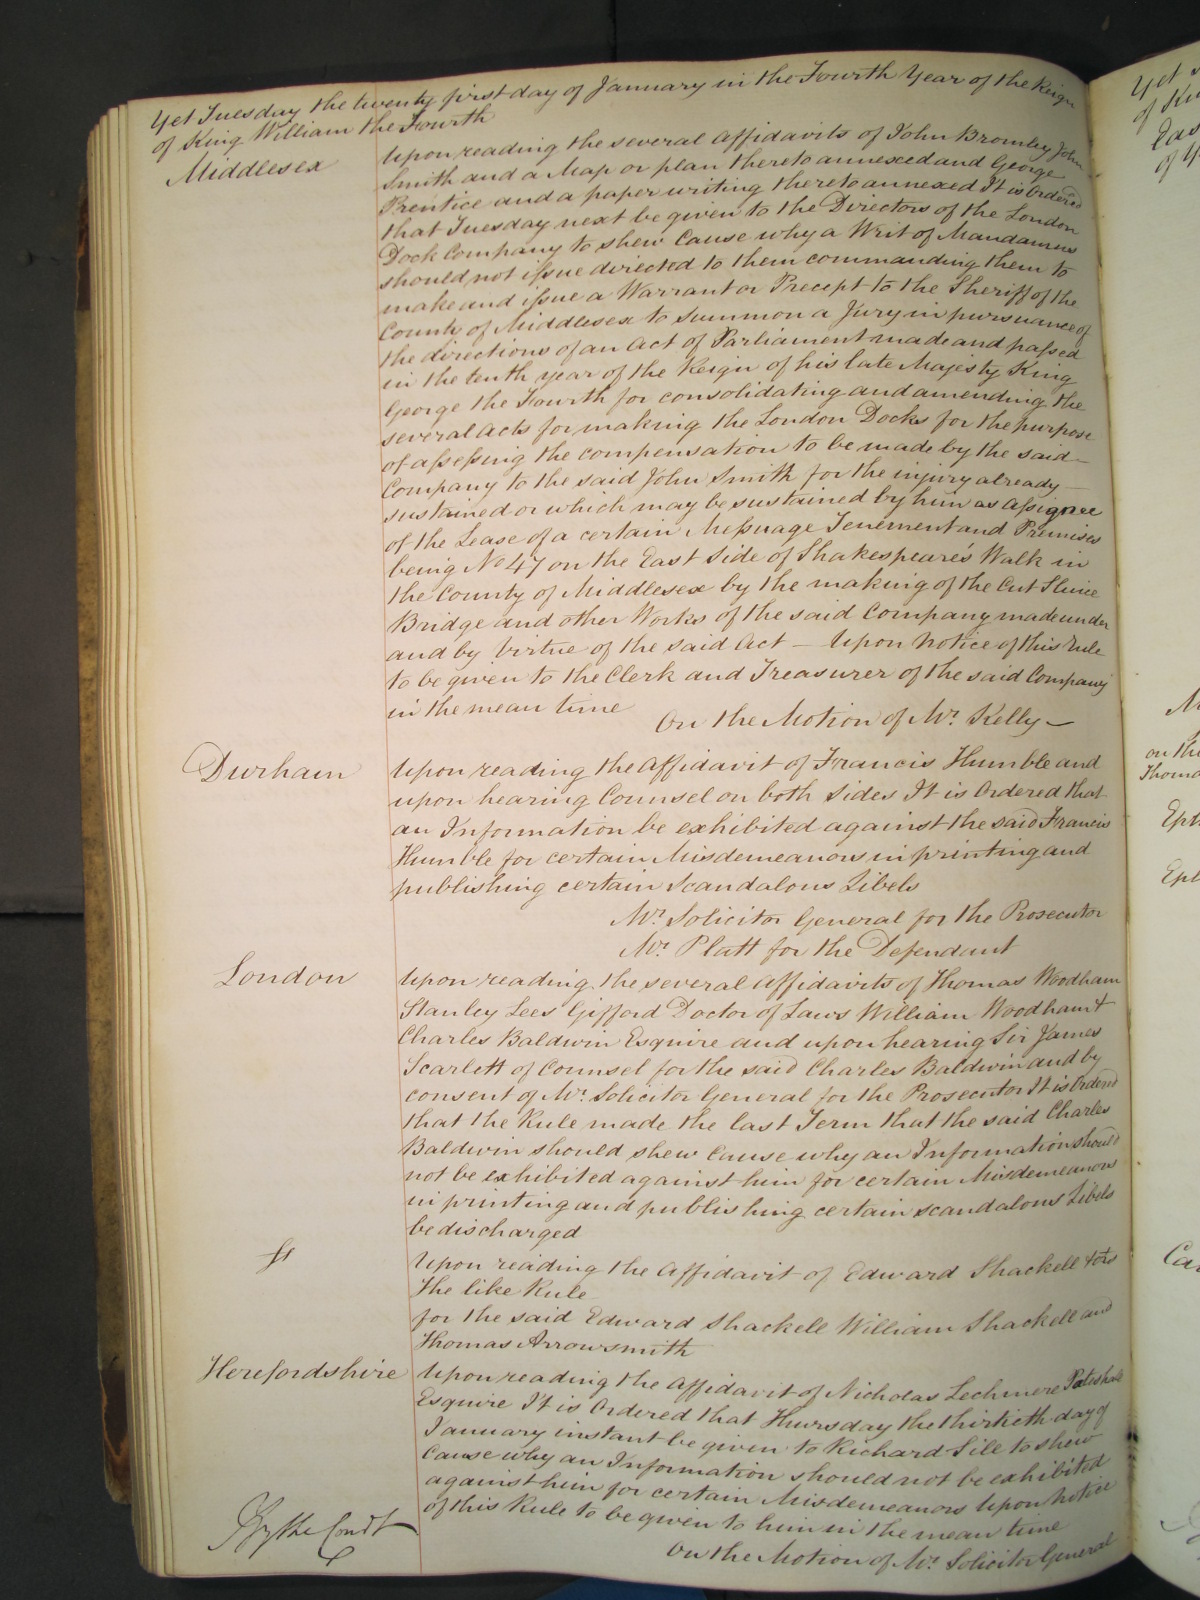 Yet Tuesday the twenty first day of January in the Fourth Year of the Reign
of King William the Fourth
Middlesex
Upon reading the several affidavits of John Bromley John
Smith and a Map or plan thereto annexed and George
Prentice and a paper writing thereto annexed It is Ordered
that Tuesday next be given to the Directors of the London
Dock Company to shew Cause why a Writ of Mandamus
should not issue directed to them commanding them to
make and issue a Warrant or Precept to the Sheriff of the
County of Middlesex to summon a Jury in pursuance of
the directions of an Act of Parliament made and passed
in the tenth year of the Reign of his late Majesty King
George the Fourth for consolidating and amending the
several Acts for making the London Docks for the purpose
of assessing the compensation to be made by the said
Company to the said John Smith for the injury already
sustained or which may be sustained by him as assignee
of the Lease of a certain Messuage Tenement and Premises
being No 47 on the East Side of Shakespeare's Walk in
the County of Middlesex by the making of the Cut Sluice
Bridge and other Works of the said Company made under
and by Virtue of the said Act — Upon Notice of this Rule
to be given to the Clerk and Treasurer of the said Company
in the mean time
On the Motion of Mr. Kelly
Durham
Upon reading the affidavit of Francis Humble and
upon hearing Counsel on both sides It is Ordered that
an Information be exhibited against the said Francis
Humble for certain Misdemeanors in printing and
publishing certain scandalous Libels
Mr. Solicitor General for the Prosecutor
Mr. Platt for the Defendant
London
Upon reading the several affidavits of Thomas Woodham
Stanley Lees Gifford Doctor of Laws William Woodham &
Charles Baldwin Esquire and upon hearing Sir James
Scarlett of Counsel for the said Charles Baldwin and by
consent of Mr. Solicitor General for the Prosecutor It is Ordered
that the Rule made the last Term that the said Charles
Baldwin should shew Cause why an Information should
not be exhibited against him for certain Misdemeanors
in printing and publishing certain scandalous Libels
be discharged
Upon reading the affidavit of Edward Shackell & ors
The like Rule
for the said Edward Shackell William Shackell and
Thomas Arrowsmith
Herefordshire
Upon reading the affidavit of Nicholas Lechmere Pateshall
Esquire It is Ordered that Thursday the thirtieth day of
January instant be given to Richard Sill to shew
Cause why an Information should not be exhibited
against him for certain Misdemeanors Upon Notice
of this Rule to be given to him in the mean time
On the Motion of Mr. Solicitor General
By the Court